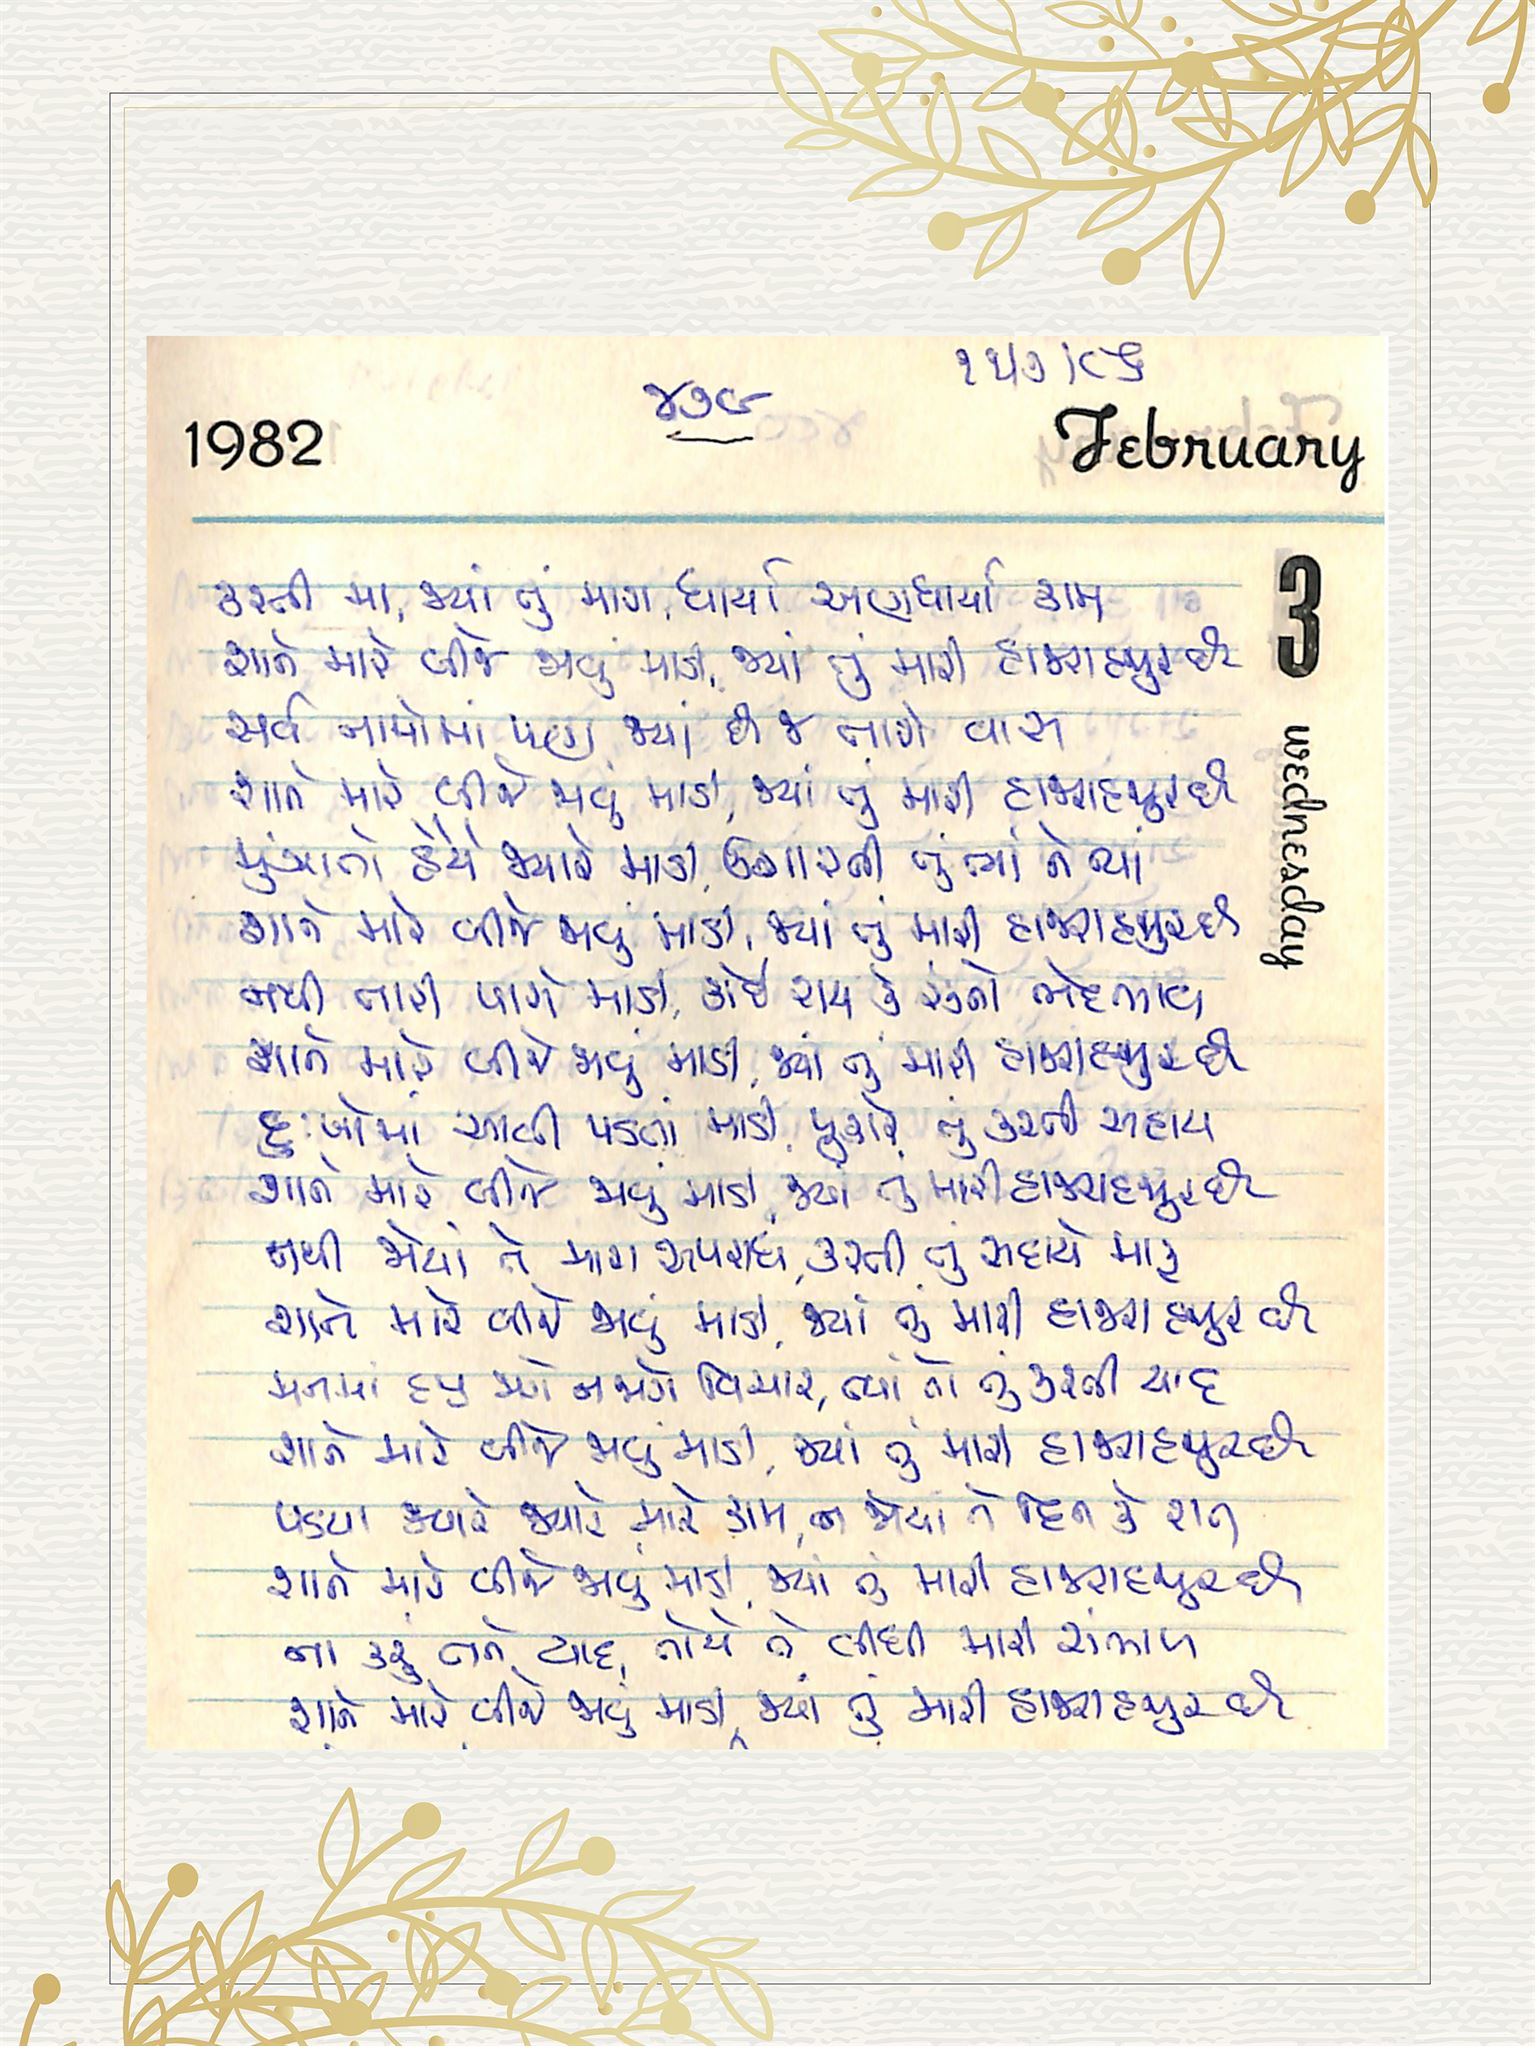 ૧૫/૭/૮૬
૪૭૯
1982
February
3
wednesday
કરતી મા, જ્યાં તું મારા, ધાર્યા અણધાર્યા કામ
શાને મારે બીજે જાવું માડી, જ્યાં તું મારી હાજરાહજુર છે
સર્વ નામોમાં પણ જ્યાં છે જ તારો વાસ
શાને મારે બીજે જાવું માડી, જ્યાં તું મારી હાજરાહજુર છે
મુંઝાતો હૈયે જ્યારે માડી, ઉગારતી તું ત્યાં ને ત્યાં
શાને મારે બીજે જાવું માડી, જ્યાં તું મારી હાજરાહજુર છે
નથી તારી પાસે માડી, કોઈ રાય કે રંકનો ભેદભાવ
શાને મારે બીજે જાવું માડી, જ્યાં તું મારી હાજરાહજુર છે
દુઃખોમાં આવી પડતાં માડી, પુકારે તું કરતી સહાય
શાને મારે બીજે જાવું માડી, જ્યાં તું મારી હાજરાહજુર છે
નથી જોયાં તેં મારા અપરાધ, કરતી તું સહાયે મારૂ
શાને મારે બીજે જાવું માડી, જ્યાં તું મારી હાજરાહજુર છે
મનમાં હજુ જાગે ન જાગે વિચાર, ત્યાં તો તું કરતી યાદ
શાને મારે બીજે જાવું માડી, જ્યાં તું મારી હાજરાહજુર છે
પડયા જ્યારે જ્યારે મારે કામ, ન જોયાં તેં દિન કે રાત
શાને મારે બીજે જાવું માડી, જ્યાં તું મારી હાજરાહજુર છે
ના કરું તને યાદ, તોયે તેં લીધી મારી સંભાળ
શાને મારે બીજે જાવું માડી, જ્યાં તું મારી હાજરાહજુર છે